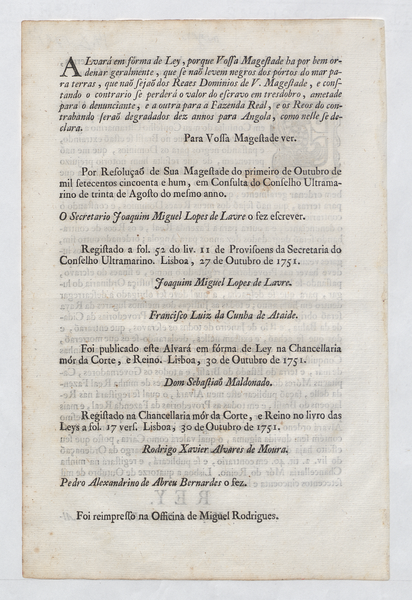 ALvará em fórma de Ley, porque Vossa Magestade ha por bem or-
denar geralmente, que se naõ levem negros dos pórtos do mar pa-
ra terras, que naõ sejaõ dos Reaes Dominios de V. Magestade, e cons-
tando o contrario se perderá o valor do escravo em tresdobro, ametade
para o denunciante, e a outra para a Fazenda Real, e os Reos do con-
trabando seraõ degradados dez annos para Angola, como nelle se de-
clara.
Para Vossa Magestade ver.
Por Resoluçaõ de Sua Magestade do primeiro de Outubro de
mil setecentos cincoenta e hum, em Consulta do Conselho Ultrama-
rino de trinta de Agosto do mesmo anno.
O Secretario Joaquim Miguel Lopes de Lavre o fez escrever.
Registado a fol. 52 do liv. 11 de Provisoens da Secretaria do
Conselho Ultramarino. Lisboa, 27 de Outubro de 1751.
Joaquim Miguel Lopes de Lavre.
Francisco Luiz da Cunha de Ataide.
Foi publicado este Alvará em fórma de Ley na Chancellaria
mór da Corte, e Reino. Lisboa, 30 de Outubro de 1751.
Dom Sebastiaõ Maldonado.
Registado na Chancellaria mór da Corte, e Reino no livro das
Leys a fol. 17 vers. Lisboa, 30 de Outubro de 1751.
Rodrigo Xavier Alvares de Moura.
Pedro Alexandrino de Abreu Bernardes o fez.
Foi reimpresso na Officina de Miguel Rodrigues.